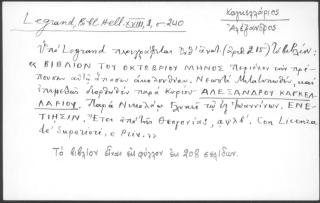 Legrand, Bibl. Hell. XVIII, 1, σ. 240
Καγκελλάριος
Ἀλέξανδρος
Ὑπὸ Legrand περιγράφεται ὑπ' ἀριθ. 215) τὸ βιβλίον:
« ΒΙΒΛΙΟΝ ΤΟΥ ΟΚΤΩΒΡΙΟΥ ΜΗΝΟΣ Περιέχον τὴν πρέ-
πουσαν αὐτῷ ἅπασαν ἀκολουθίαν. Νεωστὶ Μετατυπωθὲν, καὶ
ἐπιμελῶς διορθωθὲν παρὰ Κυρίου ΑΛΕΞΑΝΔΡΟΥ ΚΑΓΚΕΛ-
ΛΑΡΙΟΥ. Παρὰ Νικολάῳ Γλυκεῖ τῷ ἐξ Ἰωαννίνων. ΕΝΕ-
ΤΙΗΣΙΝ. Ἔτει ἀπὸ τῆς Θεογονίας, αψλβʹ. Con Licenza
de' Superiori. e Priv. »
Τὸ βιβλίον εἶναι εἰς φύλλον ἐκ 208 σελίδων.